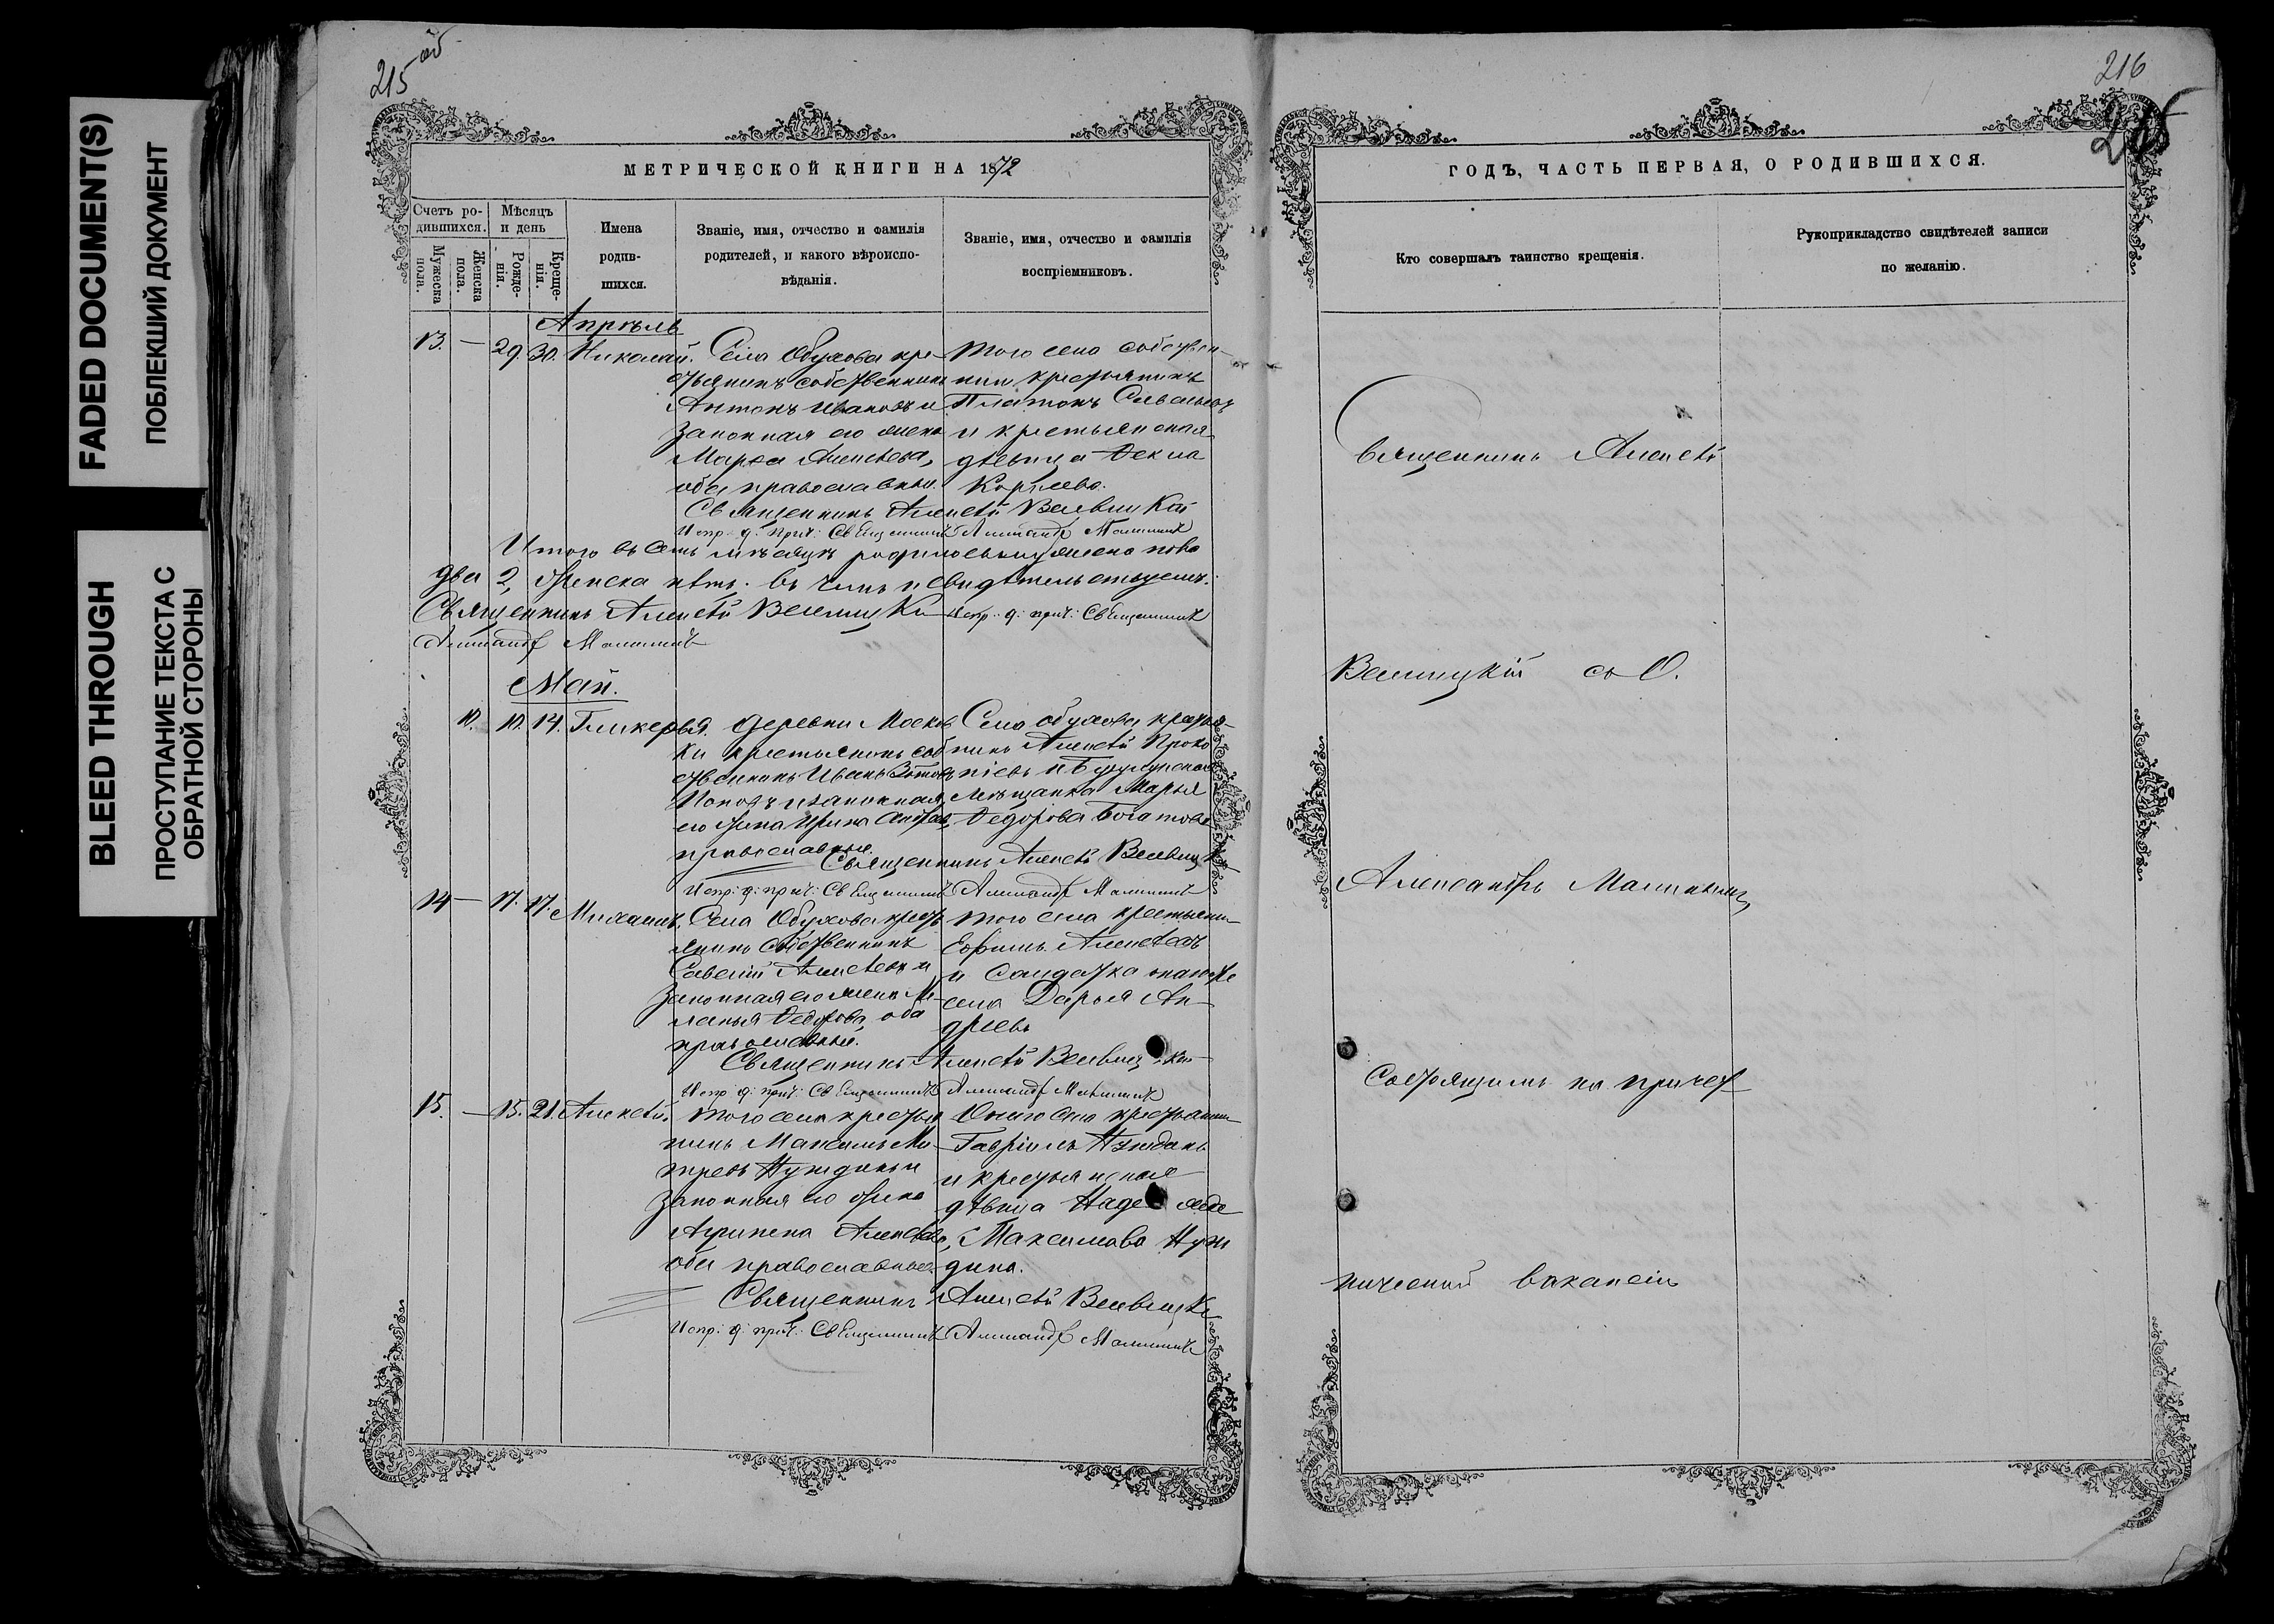 FADED DOCUMENT(S)
ПОБЛЕКШИЙ ДОКУМЕНТ
BLEED THROUGH
ПРОСТУПАНИЕ ТЕКСТА С
ОБРАТНОЙ СТОРОНЫ
215 об
МЕТРИЧЕСКОЙ КНИГИ НА 1872
Счетъ ро-
дившихся.
Мужеска
пола.
Женска
пола.
Мѣсяцъ
и день
Рожде-
нія.
Креще-
нія.
Имена
родив-
шихся.
Званіе, имя, отчество и фамилія
родителей, и какого вѣроиспо-
вѣданія.
Званіе, имя, отчество и фамилія
воспріемниковъ.
Апрѣль
13. — 29. 30. Николай. Села Обухова кре-
стьянинъ собственникъ
Антонъ Ивановъ и
законная его жена
Марѳа Алексѣева,
оба православные.
того села собствен-
никъ крестьянинъ
Платонъ
и крестьянская
дѣвица Ѳекла
Священникъ Алексѣй
Испр. д. прич: Священникъ Александръ Малининъ
Итого въ семъ мѣсяцѣ родилось мужеска пола
два 2, женска нѣтъ. въ чемъ и свидѣтельствуемъ:
Священникъ Алексѣй Испр. д. прич: Священникъ
Александръ Малининъ
Май.
10. 10. 14. Гликерья. деревни Москов
ки крестьянинъ соб
ственникъ Иванъ Зотовъ
Поповъ и законная
его жена Ирина
православные.
Села Обухова крестья-
нинъ Алексѣй Проко
піевъ и Бугурусланская
мѣщанка Марья
Ѳедорова Богатова
Священникъ Алексѣй
Испр: д: прич: Священникъ Александръ Малининъ
14 — 17. 17. Михаилъ. Села Обухова кресть
янинъ собственникъ
Савелій Алексѣевъ и
законная его жена Ме
ланья Ѳедорова, оба
православные.
того села крестьянинъ
Ефимъ Алексѣевъ
и солдатка онаго же
села Дарья Ан-
дреева
Священникъ Алексѣй
Испр д: прич: Священникъ Александръ Малининъ
15. — 15. 21. Алексѣй. того села крестья
нинъ Максимъ Ми
тревъ Нуждинъ и
законная его жена
Агрипена Алексѣева,
оба православные.
Онаго села крестьянинъ
Гавріилъ Нуждинъ
и крестьянская
дѣвица Надежда
Максимова Нуж
дина.
Священникъ Алексѣй
Испр: д: прич: Священникъ Александръ Малининъ
216
ГОДЪ, ЧАСТЬ ПЕРВАЯ, О РОДИВШИХСЯ.
Кто совершалъ таинство крещенія.
Рукоприкладство свидѣтелей записи
по желанію.
Священникъ Алексѣй
съ О.
Александръ Малининымъ,
Состоящимъ на причет
нической вакансіи